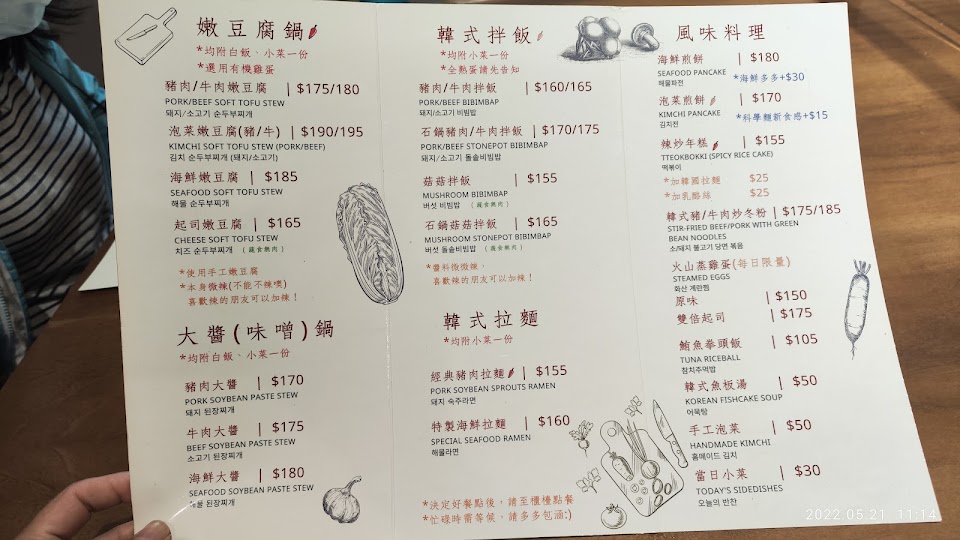 嫩豆腐鍋
*均附白飯、小菜一份
*選用有機雞蛋
豬肉/牛肉嫩豆腐 | $175/180
PORK/BEEF SOFT TOFU STEW
돼지/소고기 순두부찌개
泡菜嫩豆腐(豬/牛) | $190/195
KIMCHI SOFT TOFU STEW (PORK/BEEF)
김치 순두부찌개 (돼지/소고기)
海鮮嫩豆腐 | $185
SEAFOOD SOFT TOFU STEW
해물 순두부찌개
起司嫩豆腐 | $165
CHEESE SOFT TOFU STEW
치즈 순두부찌개 (蔬食無肉)
*使用手工嫩豆腐
*本身微辣(不能不辣噢)
喜歡辣的朋友可以加辣!
大醬(味噌)鍋
*均附白飯、小菜一份
豬肉大醬 | $170
PORK SOYBEAN PASTE STEW
돼지 된장찌개
牛肉大醬 | $175
BEEF SOYBEAN PASTE STEW
소고기 된장찌개
海鮮大醬 | $180
SEAFOOD SOYBEAN PASTE STEW
해물 된장찌개
韓式拌飯
*均附小菜一份
*全熟蛋請先告知
豬肉/牛肉拌飯 | $160/165
PORK/BEEF BIBIMBAP
돼지/소고기 비빔밥
石鍋豬肉/牛肉拌飯 | $170/175
PORK/BEEF STONEPOT BIBIMBAP
돼지/소고기 돌솥비빔밥
菇菇拌飯 | $155
MUSHROOM BIBIMBAP
버섯 비빔밥 (蔬食無肉)
石鍋菇菇拌飯 | $165
MUSHROOM STONEPOT BIBIMBAP
버섯 돌솥비빔밥 (蔬食無肉)
*醬料微微辣,
喜歡辣的朋友可以加辣!
韓式拉麵
*均附小菜一份
經典豬肉拉麵 | $155
PORK SOYBEAN SPROUTS RAMEN
돼지 숙주라면
特製海鮮拉麵 | $160
SPECIAL SEAFOOD RAMEN
해물라면
*決定好餐點後,請至櫃檯點餐
*忙碌時需等候,請多多包涵:)
風味料理
海鮮煎餅 | $180
SEAFOOD PANCAKE *海鮮多多+$30
해물파전
泡菜煎餅 | $170
KIMCHI PANCAKE *科學麵新食感+$15
김치전
辣炒年糕 | $155
TTEOKBOKKI (SPICY RICE CAKE)
떡볶이
*加韓國拉麵 $25
*加乳酪絲 $25
韓式豬/牛肉炒冬粉 | $175/185
STIR-FRIED BEEF/PORK WITH GREEN
BEAN NOODLES
소/돼지 불고기 당면 볶음
火山蒸雞蛋(每日限量)
STEAMED EGGS
화산 계란찜
原味 | $150
雙倍起司 | $175
鮪魚拳頭飯 | $105
TUNA RICEBALL
참치주먹밥
韓式魚板湯 | $50
KOREAN FISHCAKE SOUP
어묵탕
手工泡菜 | $50
HANDMADE KIMCHI
홈메이드 김치
當日小菜 | $30
TODAY'S SIDEDISHES
오늘의 반찬
2022.05.21 11:14